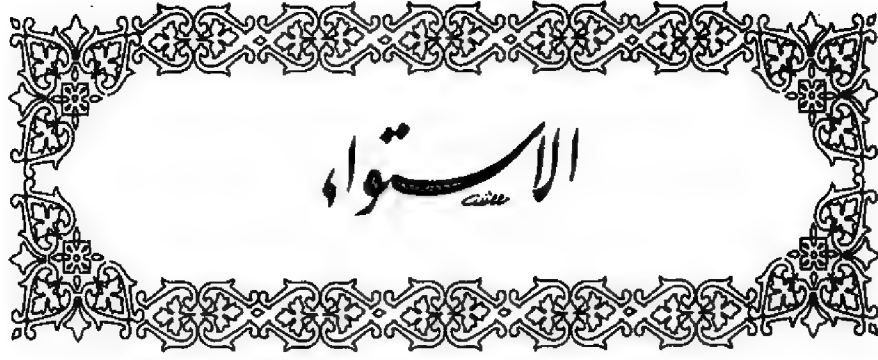 الاستواء